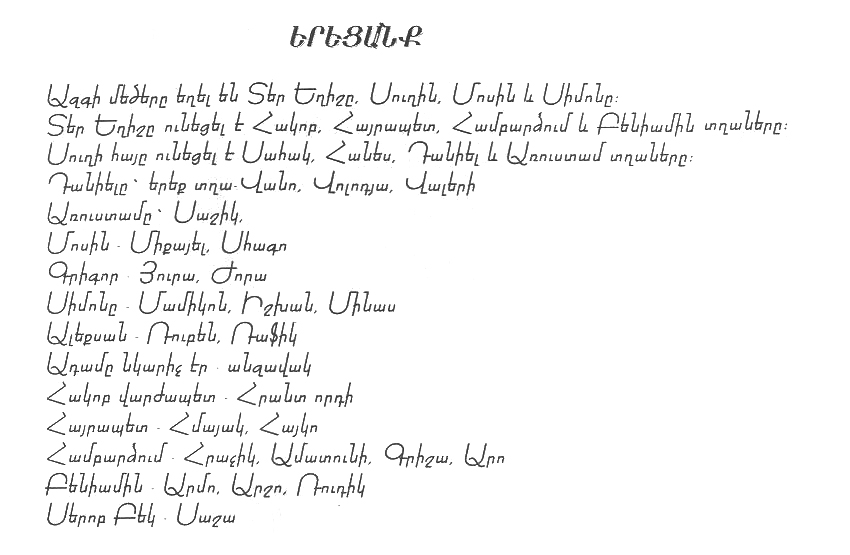 ԵՐԵՑԱՆՔ
Ազգի մեծերը եղել են Տեր Եղիշը, Սուղին, Մոսին և Սիմոնը։
Տեր Եղիշը ունեցել է Հակոբ, Հայրապետ, Համբարձում և Բենիամին տղաները։
Սուղի հայը ունեցել է Սահակ, Հանես, Դանիել և Առուստամ տղաները։
Դանիելը՝ երեք տղա-Վանո, Վոլոդյա, Վալերի
Առուստամը՝ Սաշիկ,
Մոսին - Միքայել, Միագո
Գրիգոր - Յուրա, Ժորա
Սիմոնը - Մամիկոն, Իշխան, Մինաս
Ալեքսան - Ռուբեն, Ռաֆիկ
Ադամը նկարիչ էր - անզավակ
Հակոբ վարժապետ - Հրանտ որդի
Հայրապետ - Հմայակ, Հայկո
Համբարձում - Հրաչիկ, Ամատունի, Գրիշա, Արո
Բենիամին - Արմո, Արշո, Ռուդիկ
Սերոբ Բեկ - Սաշա